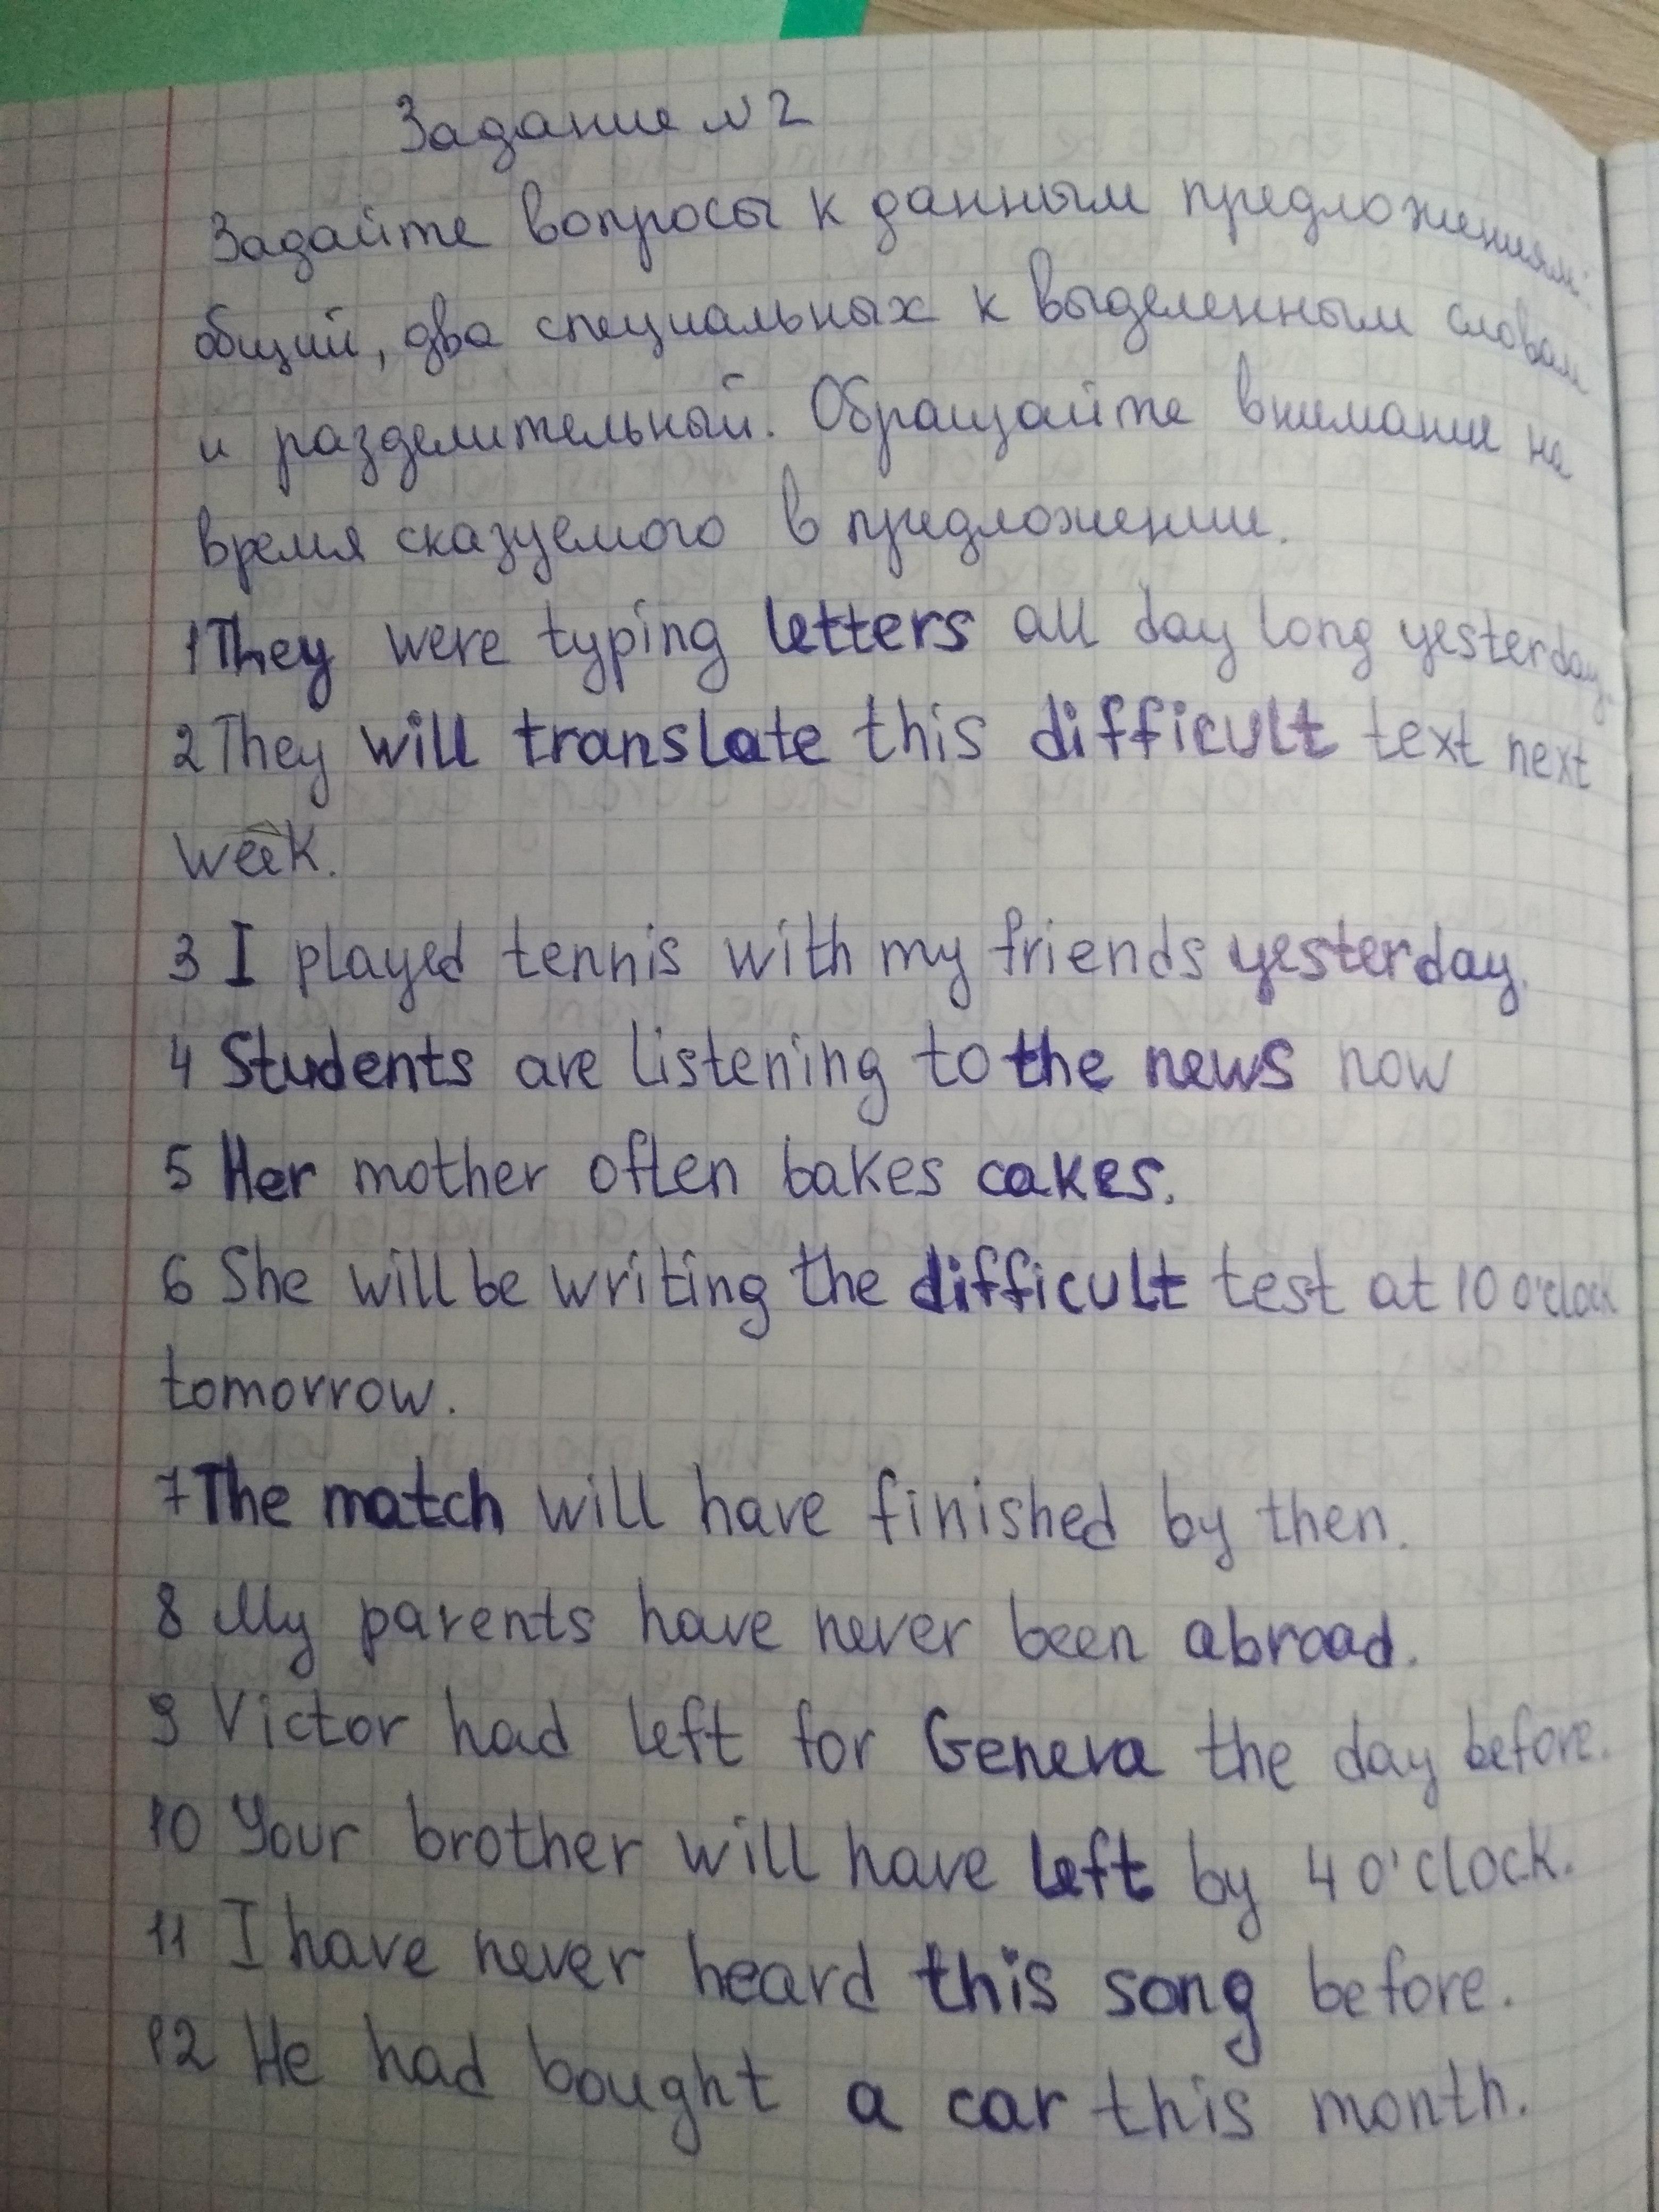 Задание №2
Задайте вопросы к данным предложениям:
общий, два специальных к выделенным словам
и разделительный. Обращайте внимание на
время сказуемого в предложении.
1 They were typing letters all day long yesterday.
2 They will translate this difficult text next
week.
3 I played tennis with my friends yesterday.
4 Students are listening to the news now
5 Her mother often bakes cakes.
6 She will be writing the difficult test at 10 o'clock
tomorrow.
7 The match will have finished by then.
8 My parents have never been abroad.
9 Victor had left for Geneva the day before.
10 Your brother will have left by 4 o'clock.
11 I have never heard this song before.
12 He had bought a car this month.